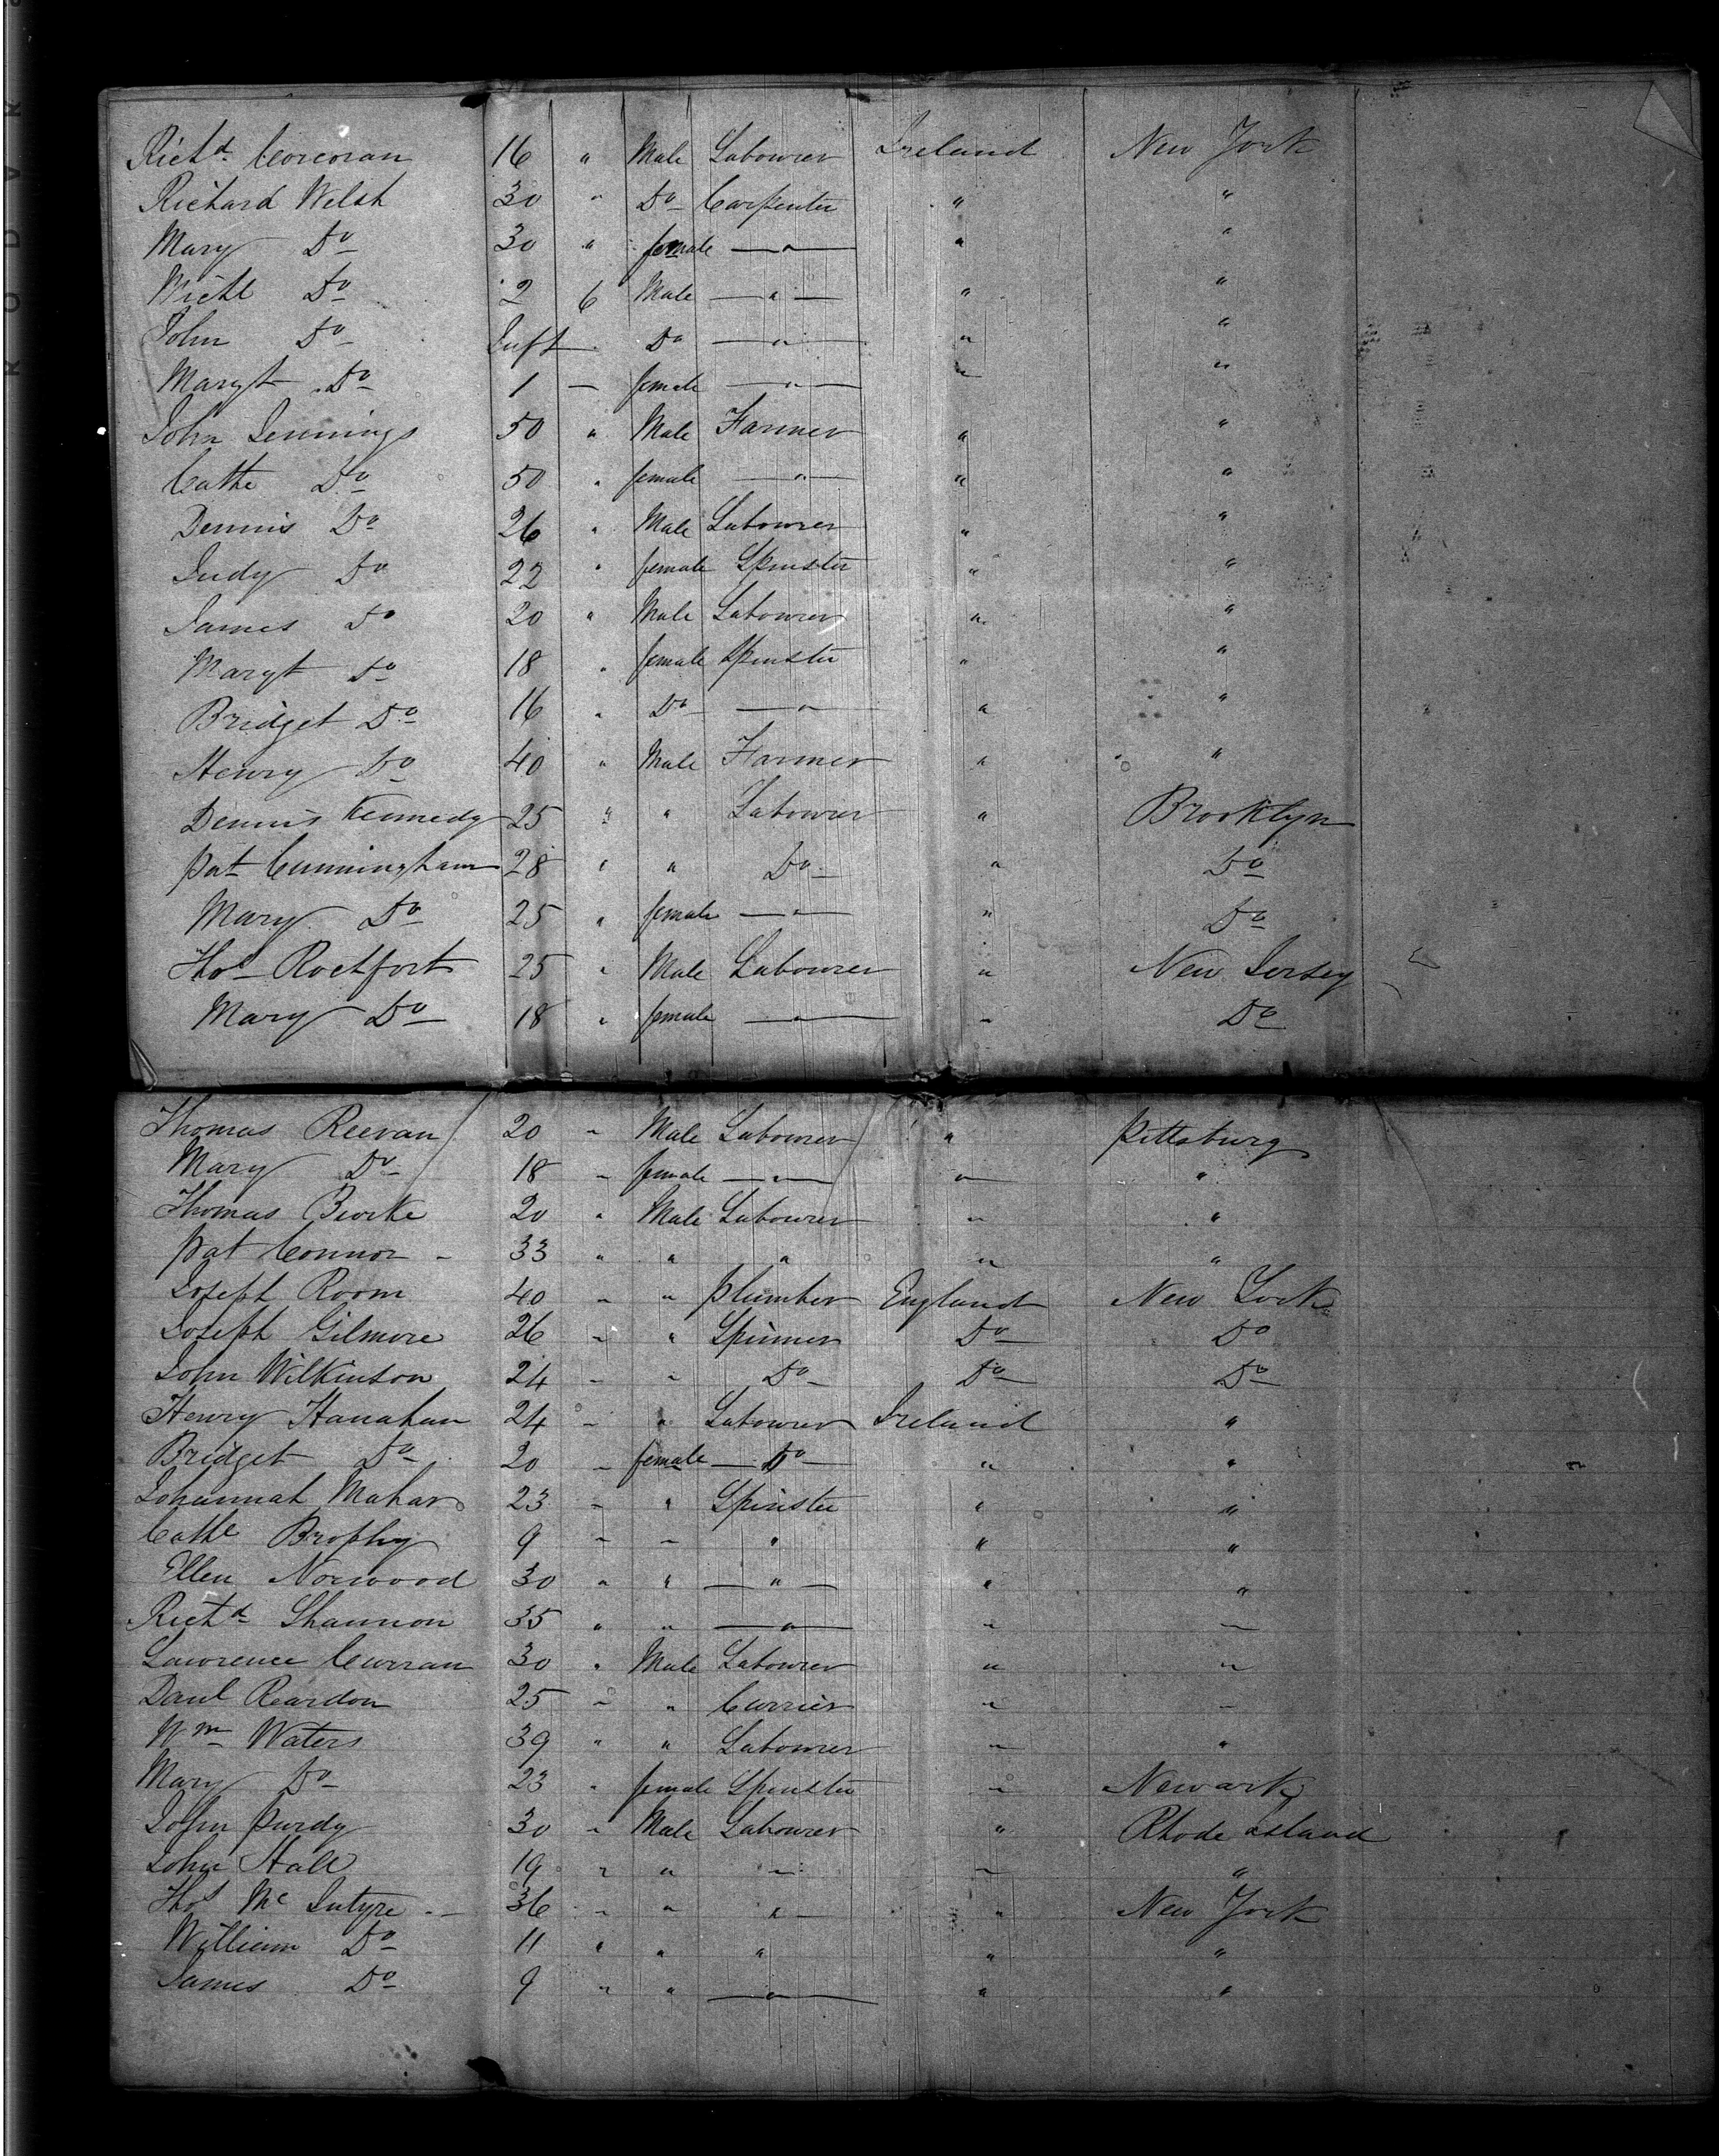 Richd Corcoran 16 " Male Labourer Ireland New York
Richard Welsh 30 " Do Carpenter " "
Mary Do 30 " female — " — " "
Michl Do 2 6 Male — " — " "
John Do Inft Do — " — " "
Margt Do 1 — female — " — " "
John Jennings 50 " Male Farmer " "
Cathe Do 50 " female — " — " "
Dennis Do 26 " Male Labourer " "
Judy Do 22 " female Spinster " "
James Do 20 " Male Labourer " "
Margt Do 18 " female Spinster " "
Bridget Do 16 " Do — " — " "
Henry Do 40 " Male Farmer " "
Dennis Kennedy 25 " " Labourer " Brooklyn
Pat Cunningham 28 " " Do " Do
Mary Do 25 " female — " — " Do
Thos Rochfort 25 " Male Labourer " New Jersey
Mary Do 18 " female — " — " Do
Thomas Reevan 20 " Male Labourer " Pittsburg
Mary Do 18 " female — " — " "
Thomas Burke 20 " Male Labourer " "
Pat Connor 33 " " " " "
Joseph Room 40 " " Plumber England New York
Joseph Gilmore 26 " " Spinner Do Do
John Wilkinson 24 " " Do Do Do
Henry Hanahan 24 " " Labourer Ireland "
Bridget Do 20 " female — Do — " "
Johannah Mahar 23 " " Spinster " "
Cathe Brophy 9 " " " " "
Ellen Norwood 30 " " — " — " "
Richd Shannon 35 " " — " — " "
Lawrence Curran 30 " Male Labourer " "
Danl Reardon 25 " " Currier " "
Wm Waters 39 " " Labourer " "
Mary Do 23 " female Spinster " Newark
John Purdy 30 " Male Labourer " Rhode Island
John Hall 19 " " " " "
Thos Mc Intyre 36 " " " " New York
William Do 11 " " " " "
James Do 9 " " — " — " "